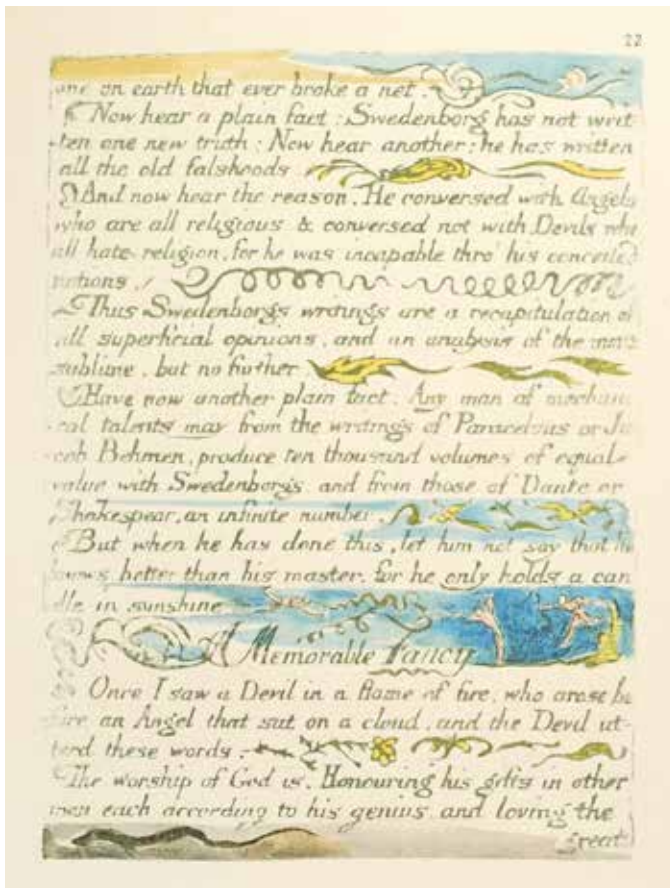 22
one on earth that ever broke a net.
Now hear a plain fact: Swedenborg has not writ-
ten one new truth: Now hear another: he has written
all the old falshoods
And now hear the reason. He conversed with Angels
who are all religious & conversed not with Devils who
all hate religion, for he was incapable thro' his conceited
notions.
Thus Swedenborgs writings are a recapitulation of
all superficial opinions, and an analysis of the more
sublime, but no further
Have now another plain fact: Any man of mechani
cal talents may from the writings of Paracelsus or Ja
cob Behmen, produce ten thousand volumes of equal
value with Swedenborgs and from those of Dante or
Shakespear, an infinite number.
But when he has done this, let him not say that he
knows better than his master, for he only holds a can
dle in sunshine
A Memorable Fancy
Once I saw a Devil in a flame of fire, who arose be
fore an Angel that sat on a cloud, and the Devil ut-
terd these words.
The worship of God is. Honouring his gifts in other
men each according to his genius, and loving the
great